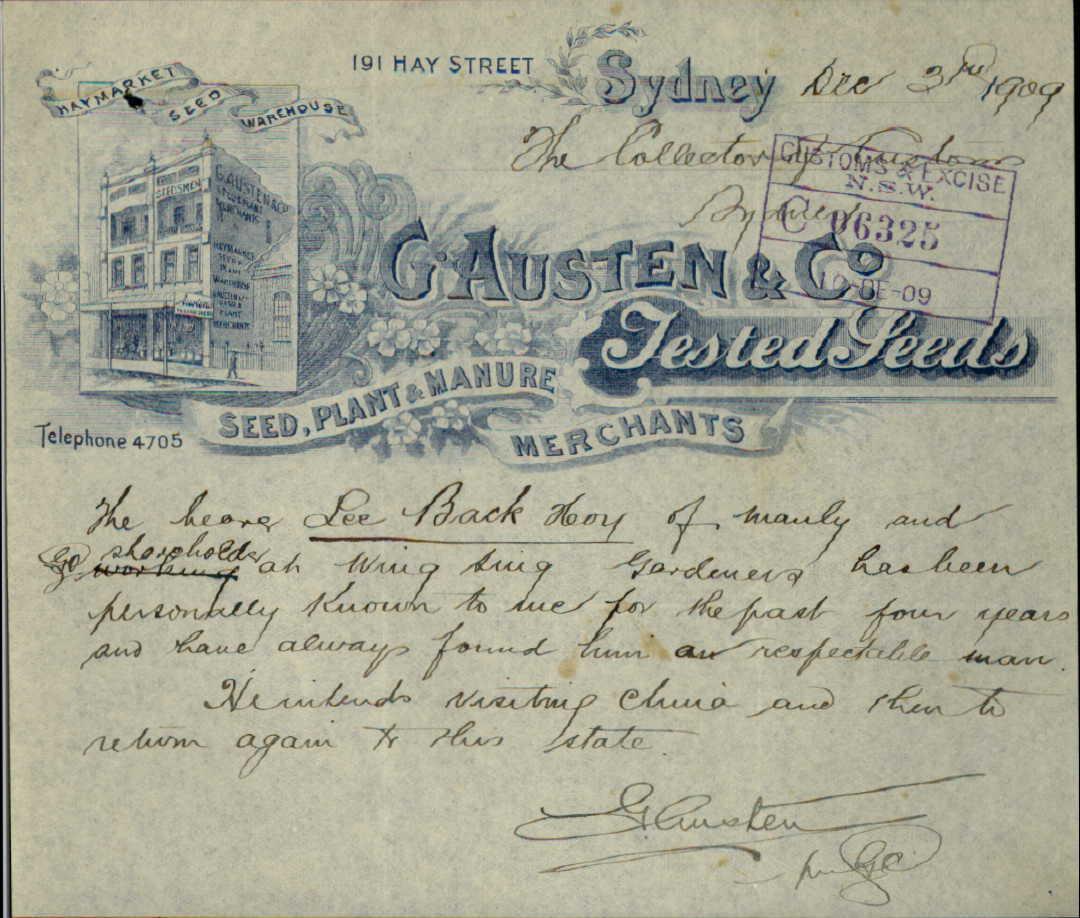 HAYMARKET SEED WAREHOUSE
191 HAY STREET Sydney Dec 3rd 1909
The Collector of Customs
Sydney
CUSTOMS & EXCISE
N.S.W.
C 06325
DE-09
SEEDSMEN
G. AUSTEN & CO
SEED & PLANT
MERCHANTS
HAYMARKET
SEED &
PLANT
WAREHOUSE
PLANT
MERCHANTS
G. AUSTEN & Co
Tested Seeds
SEED, PLANT & MANURE
MERCHANTS
Telephone 4705
The bearer Lee Back Hoy of Manly and
shareholder
working at Wing Sing Gardeners has been
personally known to me for the past four years
and have always found him a respectable man.
He intends visiting China and then to
return again to this state.
G. Austen